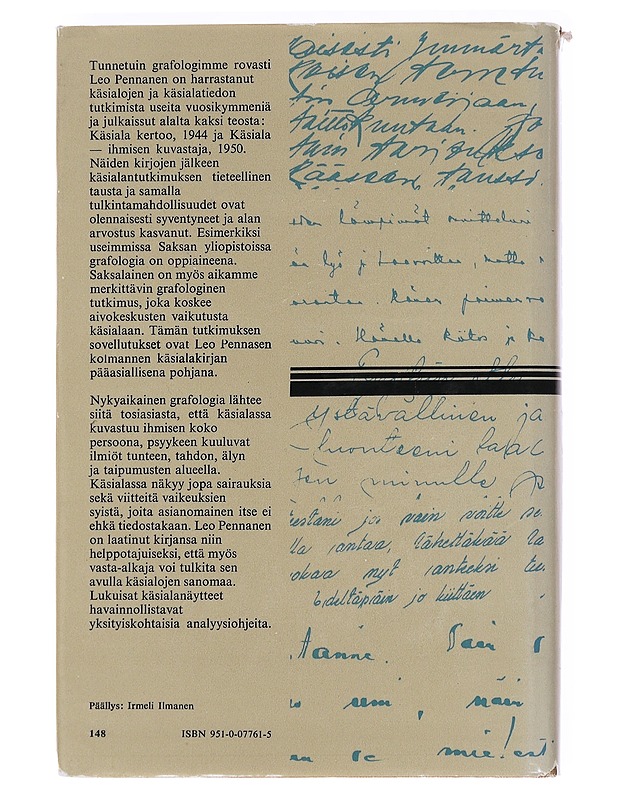 Tunnetuin grafologimme rovasti
Leo Pennanen on harrastanut
käsialojen ja käsialatiedon
tutkimista useita vuosikymmeniä
ja julkaissut alalta kaksi teosta:
Käsiala kertoo, 1944 ja Käsiala
— ihmisen kuvastaja, 1950.
Näiden kirjojen jälkeen
käsialantutkimuksen tieteellinen
tausta ja samalla
tulkintamahdollisuudet ovat
olennaisesti syventyneet ja alan
arvostus kasvanut. Esimerkiksi
useimmissa Saksan yliopistoissa
grafologia on oppiaineena.
Saksalainen on myös aikamme
merkittävin grafologinen
tutkimus, joka koskee
aivokeskusten vaikutusta
käsialaan. Tämän tutkimuksen
sovellutukset ovat Leo Pennasen
kolmannen käsialakirjan
pääasiallisena pohjana.
Nykyaikainen grafologia lähtee
siitä tosiasiasta, että käsialassa
kuvastuu ihmisen koko
persoona, psyykeen kuuluvat
ilmiöt tunteen, tahdon, älyn
ja taipumusten alueella.
Käsialassa näkyy jopa sairauksia
sekä viitteitä vaikeuksien
syistä, joita asianomainen itse ei
ehkä tiedostakaan. Leo Pennanen
on laatinut kirjansa niin
helppotajuiseksi, että myös
vasta-alkaja voi tulkita sen
avulla käsialojen sanomaa.
Lukuisat käsialanäytteet
havainnollistavat
yksityiskohtaisia analyysiohjeita.
Päällys: Irmeli Ilmanen
148 ISBN 951-0-07761-5
ystävällinen ja
luonteeni
minulle
jos vain voitte
antaa, lähettäkää
nyt anteeksi
ja kiittäen
Sain
näin